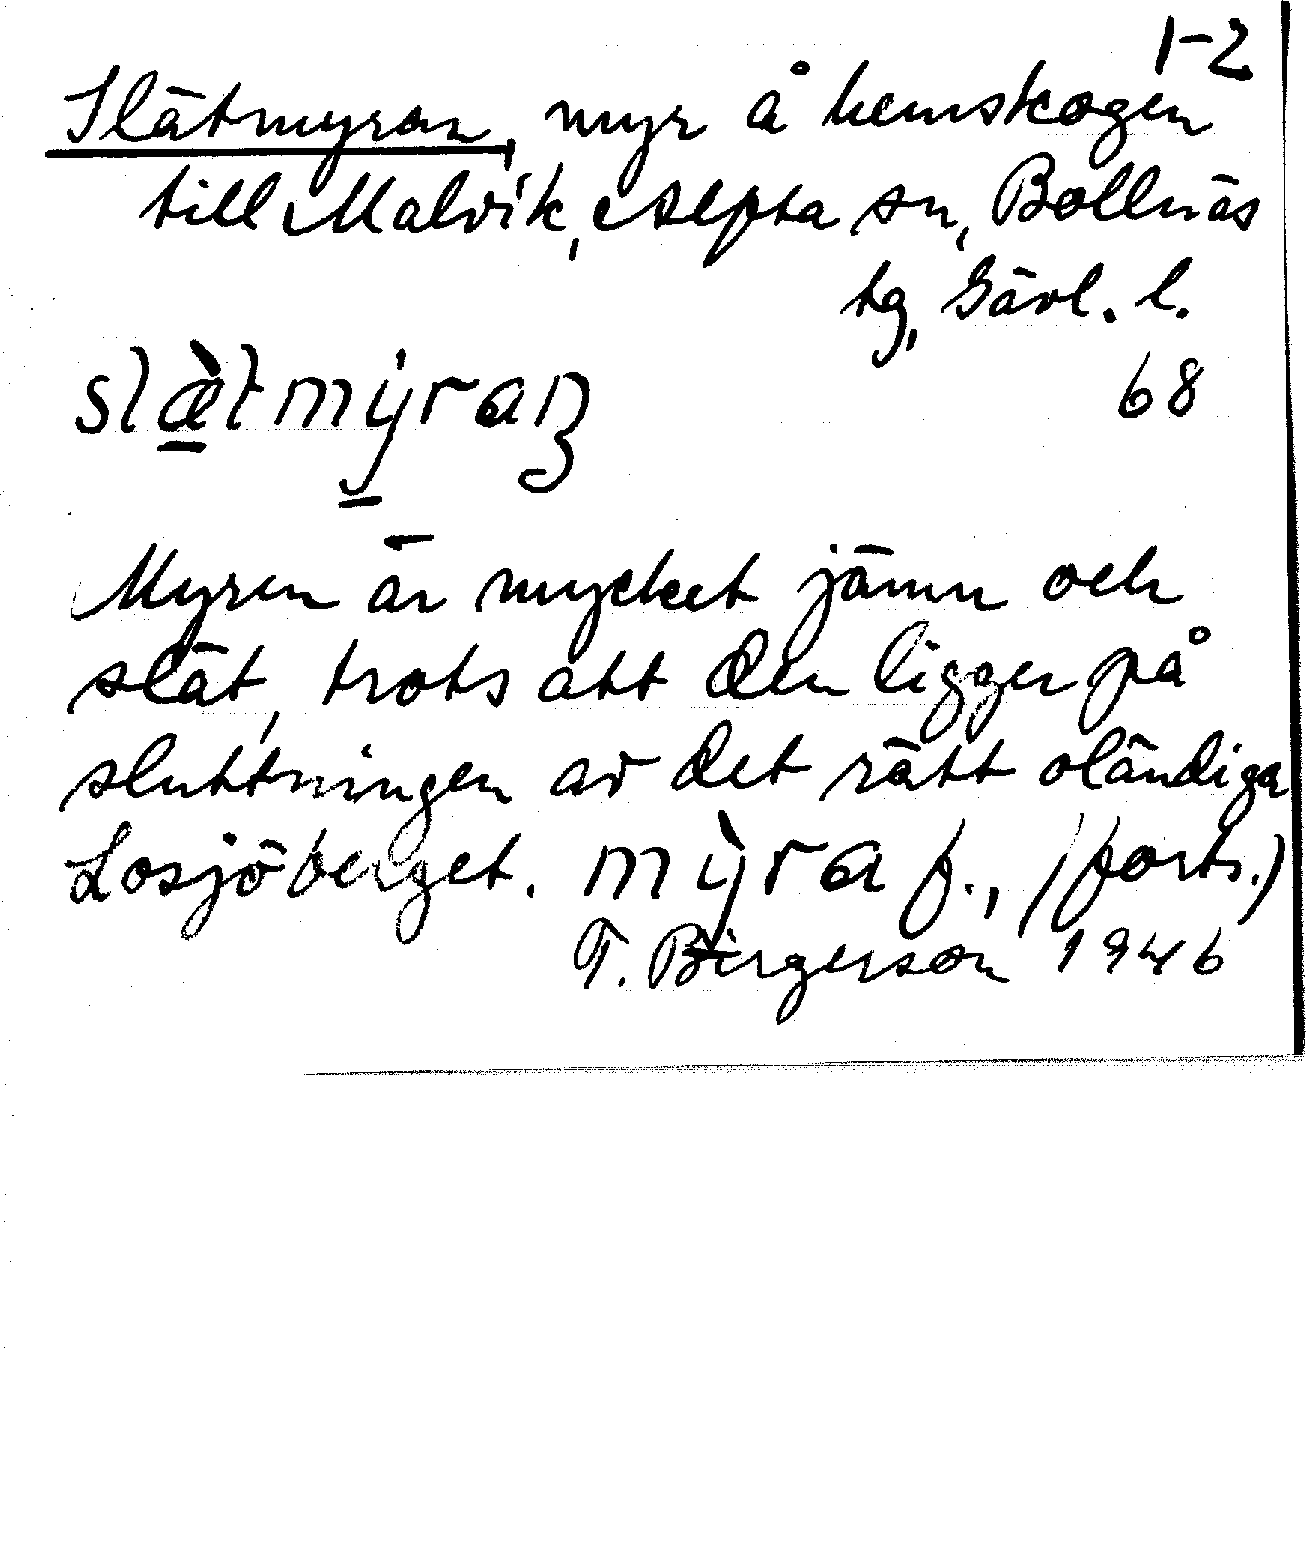 1-2
Slätmyran, myr å hemskogen
till Malvik, Alfta sn, Bollnäs
tg, Gävl. l.
68
Myren är mycket jämn och
slät, trots att den ligger på
sluttningen av det rätt oländiga
Losjöberget. mỳra f., (forts.)
T. Birgerson 1946